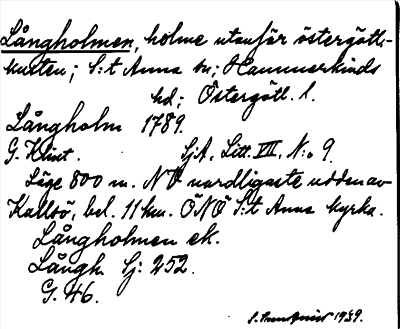 Långholmen, holme utanför östergötl-
kusten; S:t Anna sn; Hammarkinds
hd; Östergötl. l.
Långholm 1789.
G. Klint. SjA. Litt. VII, N:o 9.
Läge 800 m. NV nordligaste udden av
Kallsö, bel. 11 km. ÖNÖ S:t Anna kyrka.
Långholmen ek.
Långh. Sj: 252.
G. 46.
1939.